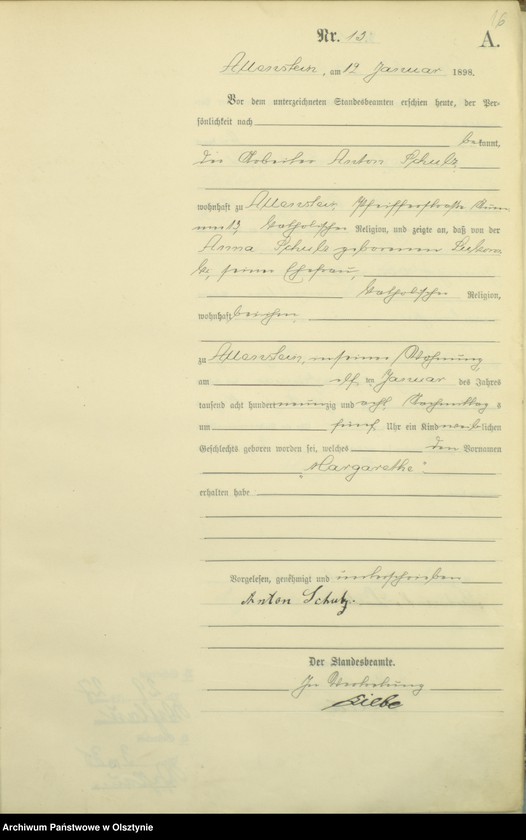 16
Nr. 13.
A.
Allenstein, am 12 Januar 1898.
Vor dem unterzeichneten Standesbeamten erschien heute, der Per-
sönlichkeit nach
bekannt,
der Arbeiter Anton Schulz
wohnhaft zu Allenstein, Pfeifferstraße Num-
mer 13, katholischer Religion, und zeigte an, daß von der
Anna Schulz geborenen
seiner Ehefrau,
katholischer Religion,
wohnhaft bei ihm
zu Allenstein, in seiner Wohnung
am elf ten Januar des Jahres
tausend acht hundert neunzig und acht Nachmittags
um fünf Uhr ein Kind weiblichen
Geschlechts geboren worden sei, welches den Vornamen
"Margarethe"
erhalten habe
Vorgelesen, genehmigt und unterschrieben
Anton Schulz.
Der Standesbeamte.
In Vertretung
Archiwum Państwowe w Olsztynie